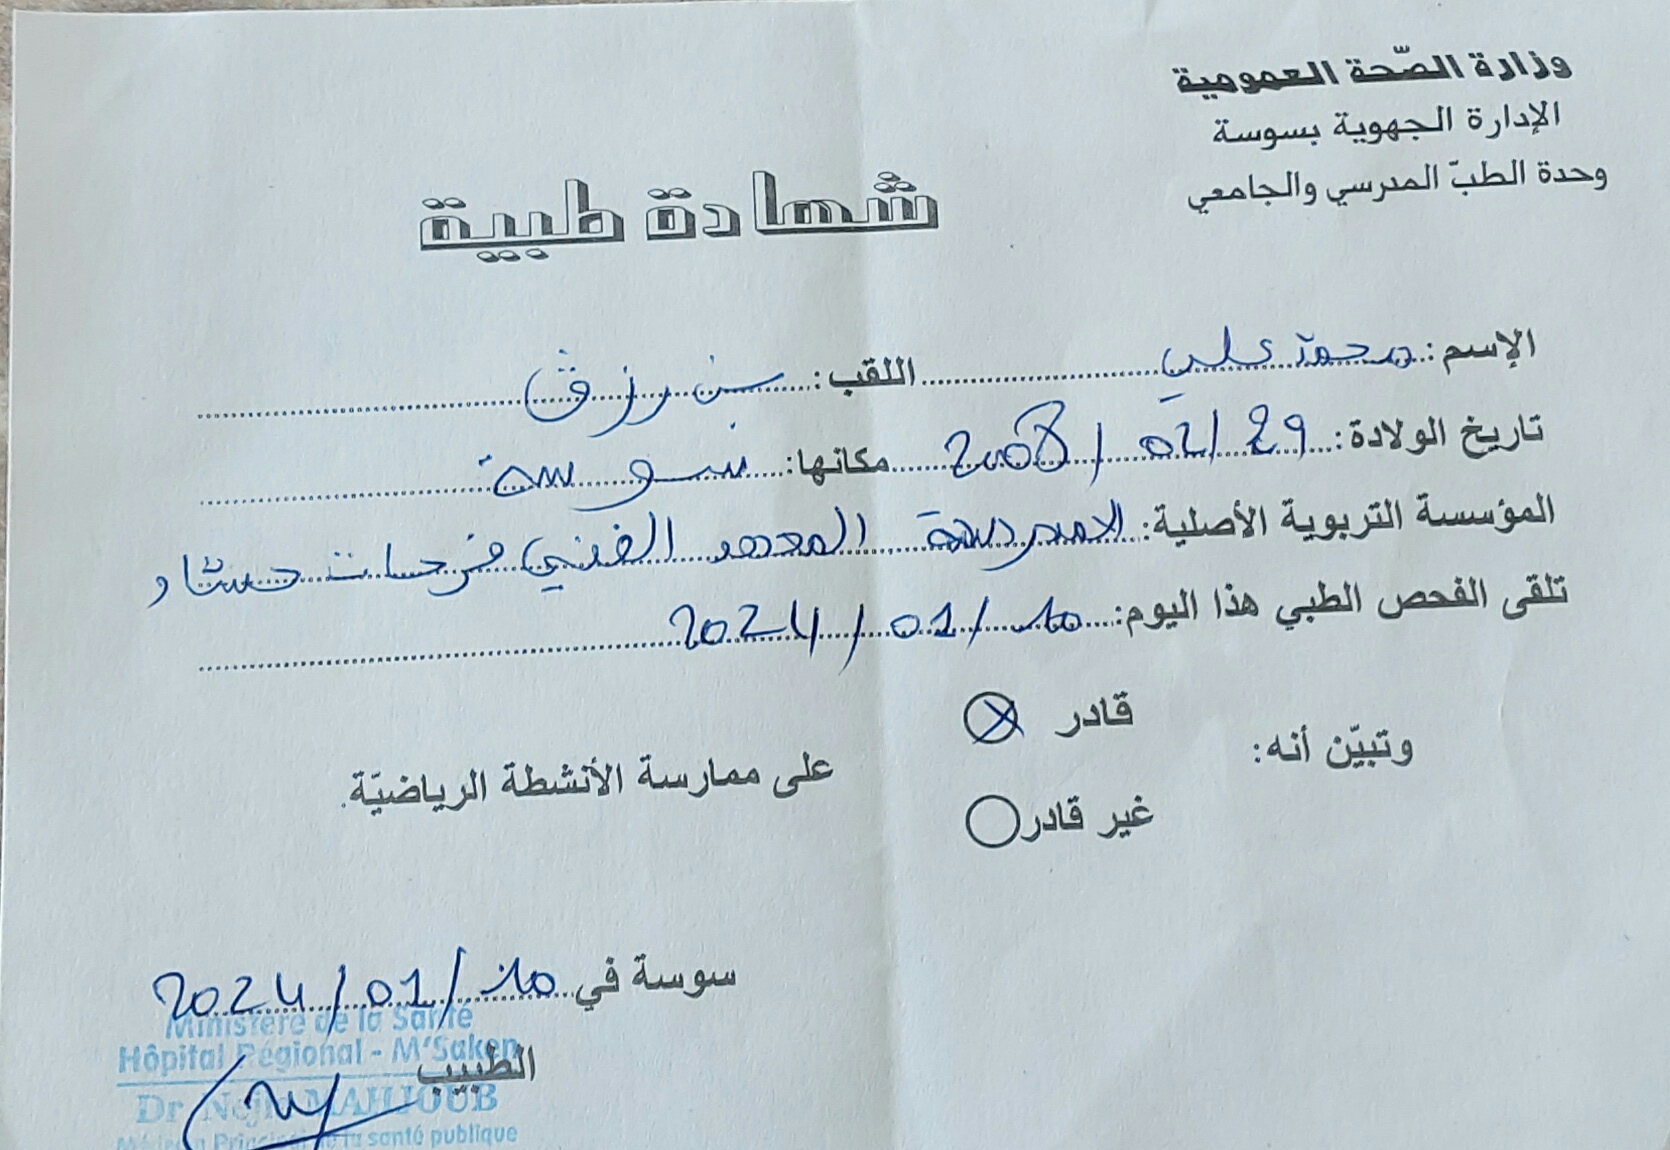 وزارة الصّحة العمومية
الإدارة الجهوية بسوسة
وحدة الطبّ المدرسي والجامعي
شهادة طبية
الإسم: محمد علي اللقب: بن رزق
تاريخ الولادة: 29/02/2008 مكانها: سوسة
المؤسسة التربوية الأصلية: المعهد الفني فرحات حشاد
تلقى الفحص الطبي هذا اليوم: 10/01/2024
وتبيّن أنه:
قادر
غير قادر
على ممارسة الأنشطة الرياضيّة.
سوسة في 10/01/2024
الطبيب
Ministère de la Santé
Hôpital Régional - M'Saken
Dr MAHJOUB
Médecin Principal de la santé publique